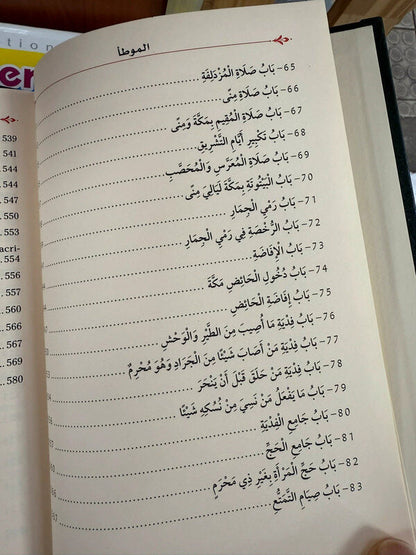 tion
er
539
541
544
544
547
550
553
acri-
.. 554
.. 556
... 557
... 560
... 567
... 569
... 580
الموطأ
65- بَابُ صَلَاةِ الْمُزْدَلِفَةِ
66- بَابُ صَلَاةِ مِنًى
67- بَابُ صَلَاةِ الْمُقِيمِ بِمَكَّةَ وَمِنًى
68- بَابُ تَكْبِيرِ أَيَّامِ التَّشْرِيقِ
69- بَابُ صَلَاةِ الْمُعَرَّسِ وَالْمُحَصَّبِ
70- بَابُ الْبَيْتُوتَةِ بِمَكَّةَ لَيَالِيَ مِنًى
71- بَابُ رَمْيِ الْجِمَارِ
72- بَابُ الرُّخْصَةِ فِي رَمْيِ الْجِمَارِ
73- بَابُ الْإِفَاضَةِ
74- بَابُ دُخُولِ الْحَائِضِ مَكَّةَ
75- بَابُ إِفَاضَةِ الْحَائِضِ
76- بَابُ فِدْيَةِ مَا أُصِيبَ مِنَ الطَّيْرِ وَالْوَحْشِ
77- بَابُ فِدْيَةِ مَنْ أَصَابَ شَيْئًا مِنَ الْجَرَادِ وَهُوَ مُحْرِمٌ
78- بَابُ فِدْيَةِ مَنْ حَلَقَ قَبْلَ أَنْ يَنْحَرَ
79- بَابُ مَا يَفْعَلُ مَنْ نَسِيَ مِنْ نُسُكِهِ شَيْئًا
80- بَابُ جَامِعِ الْفِدْيَةِ
81- بَابُ جَامِعِ الْحَجِّ
82- بَابُ حَجِّ الْمَرْأَةِ بِغَيْرِ ذِي مَحْرَمٍ
83- بَابُ صِيَامِ التَّمَتُّعِ